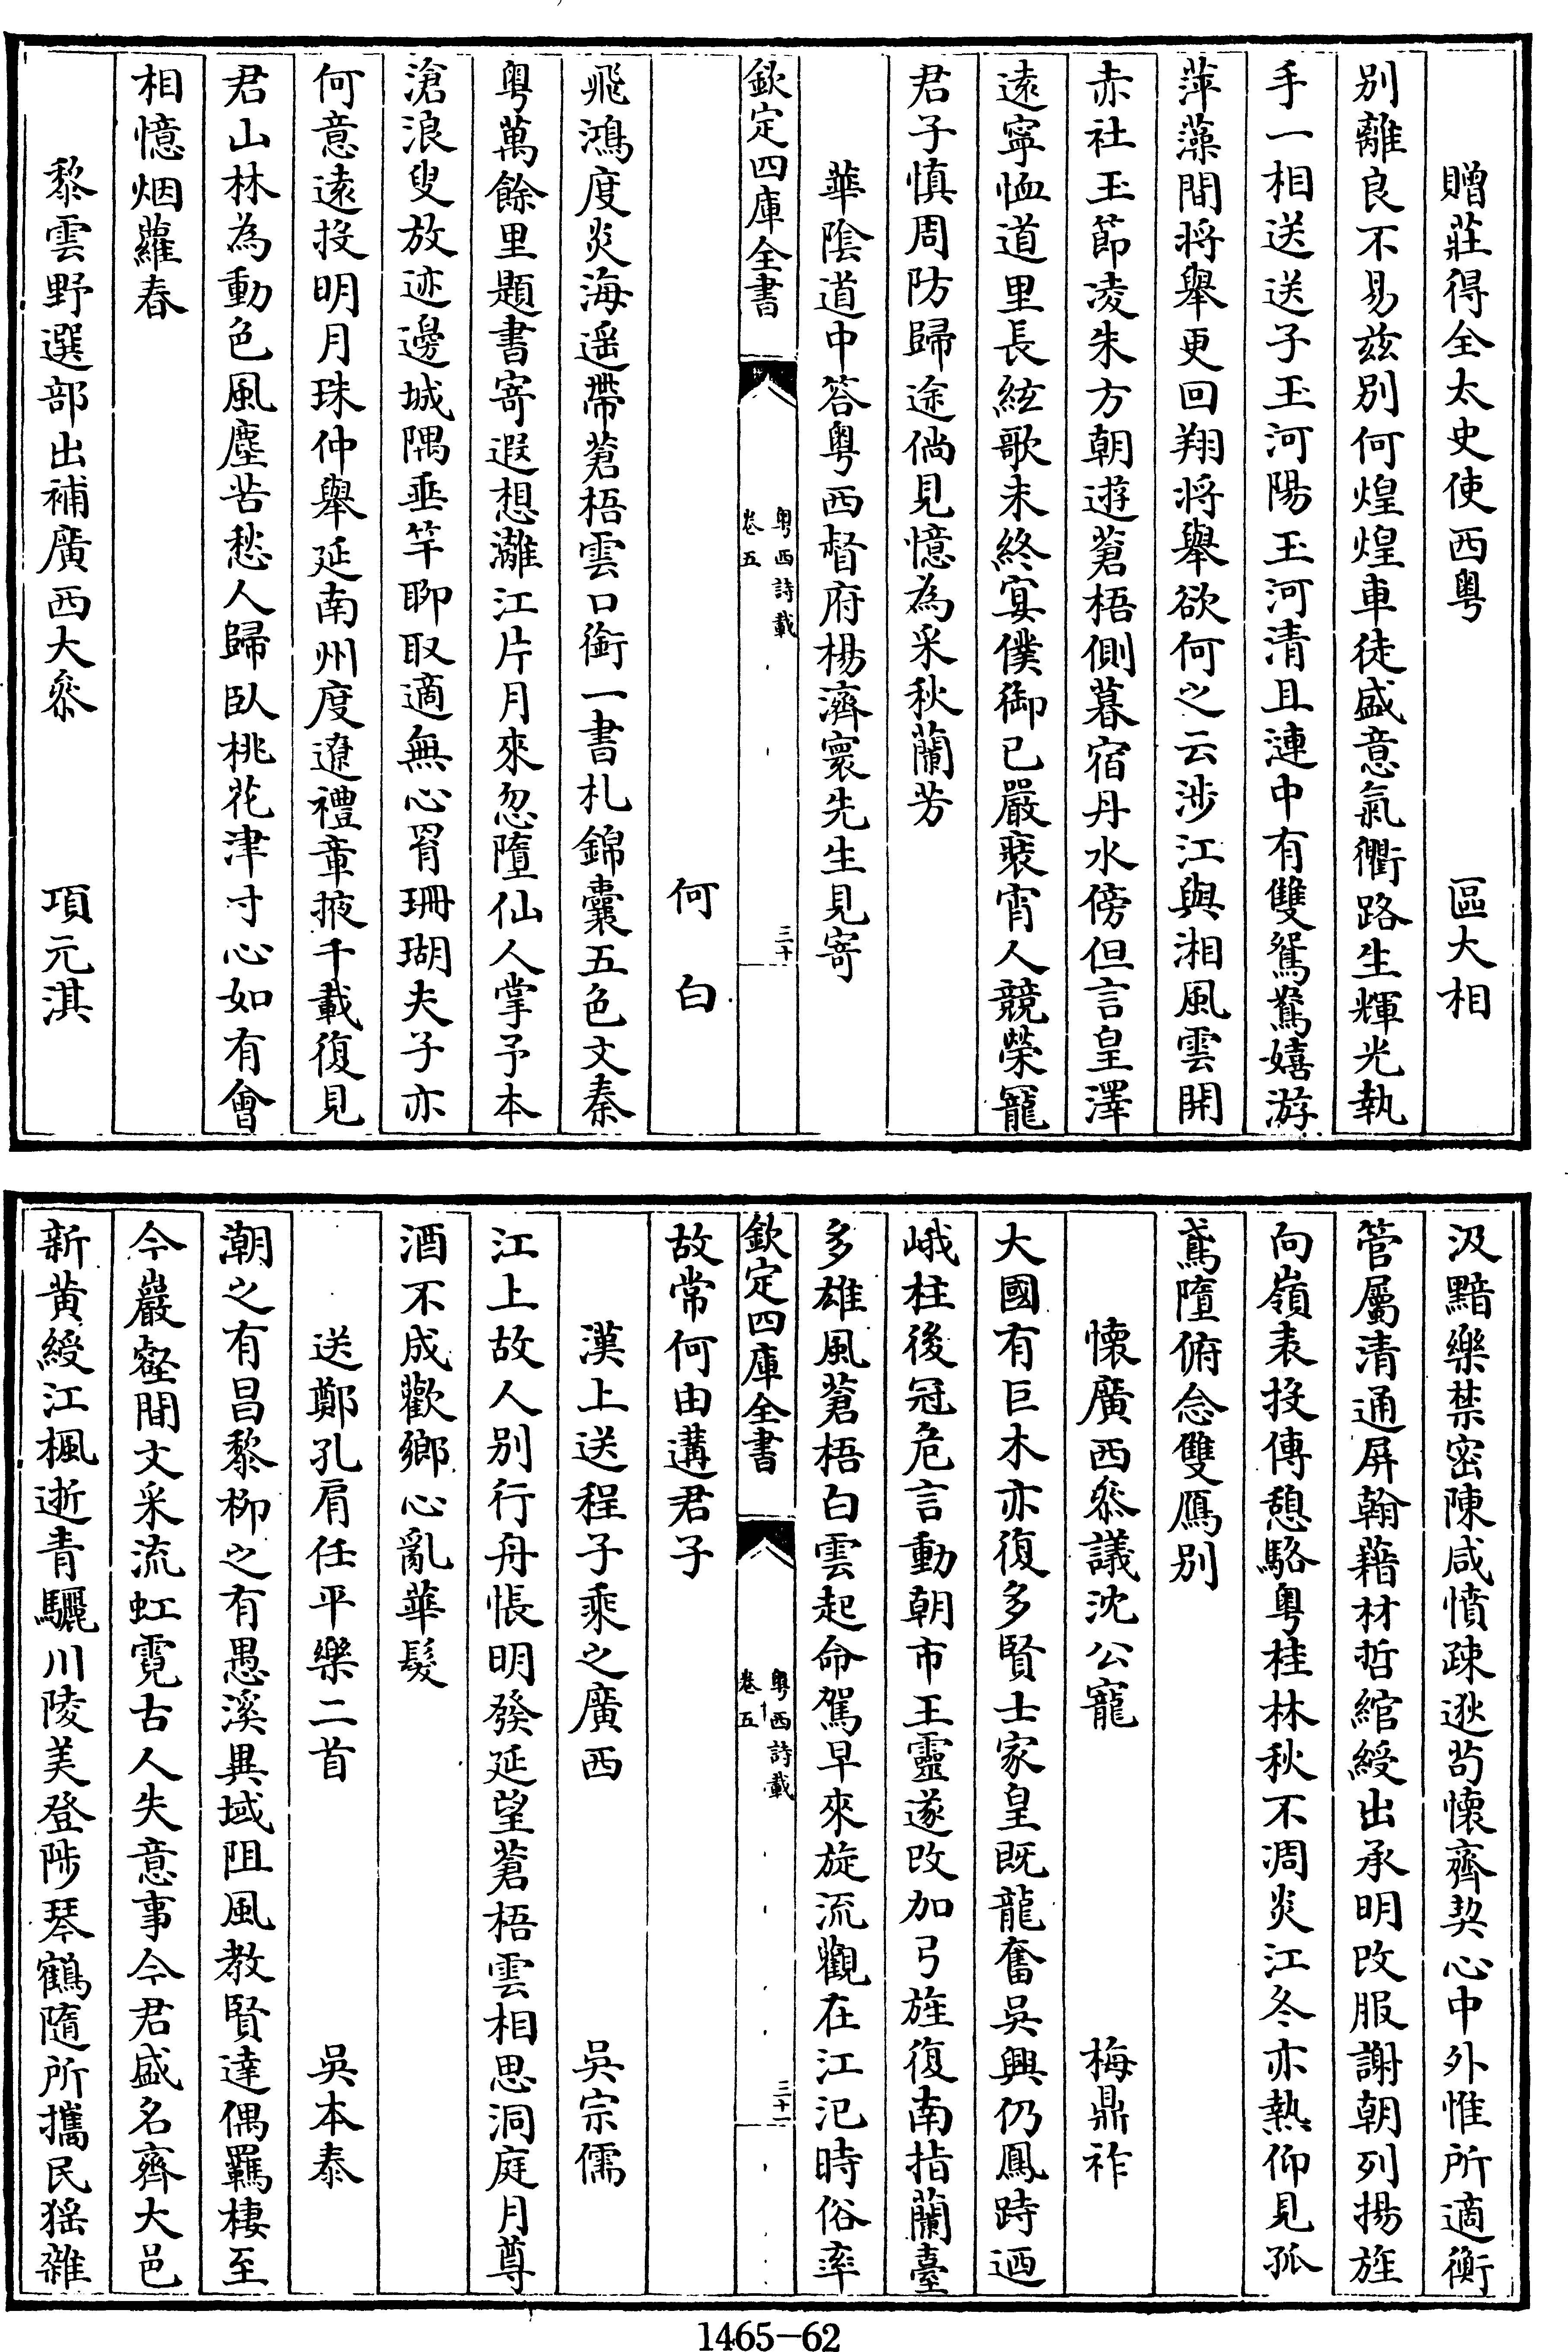 贈莊得全太史使西粤　區大相
别離良不易兹别何煌煌車徒盛意氣衢路生輝光執
手一相送送子玉河陽玉河清且漣中有雙鴛鴦嬉游
萍藻間將舉更回翔將舉欲何之云涉江與湘風雲開
赤社玉節凌朱方朝遊蒼梧側暮宿丹水傍但言皇澤
遠寧恤道里長絃歌未終宴僕御已嚴裝宵人競榮寵
君子慎周防歸途倘見憶為采秋蘭芳
華陰道中答粤西督府楊濟寰先生見寄
欽定四庫全書
粤西詩載
卷五
三十
何白
飛鴻度炎海遥帶蒼梧雲口銜一書札錦囊五色文秦
粤萬餘里題書寄遐想灕江片月來忽墮仙人掌予本
滄浪叟放迹邊城隅垂竿聊取適無心罥珊瑚夫子亦
何意遠投明月珠仲舉延南州度遼禮章掖千載復見
君山林為動色風塵苦愁人歸臥桃花津寸心如有會
相憶烟蘿春
黎雲野選部出補廣西大叅　項元淇
汲黯樂禁密陳咸憤疎逖茍懷齊契心中外惟所適衡
管屬清通屏翰藉材哲綰綬出承明改服謝朝列揚旌
向嶺表投傳憩駱粤桂林秋不凋炎江冬亦熱仰見孤
鳶墮俯念雙鴈别
懷廣西叅議沈公寵　梅鼎祚
大國有巨木亦復多賢士家皇既龍奮吳興仍鳳跱迺
峨柱後冠危言動朝市王靈遂改加弓旌復南指蘭臺
多雄風蒼梧白雲起命駕早來旋流觀在江汜時俗率
欽定四庫全書
粤西詩載
卷五
三十一
故常何由遘君子
漢上送程子乘之廣西　吳宗儒
江上故人别行舟悵明發延望蒼梧雲相思洞庭月尊
酒不成歡鄉心亂華髮
送鄭孔肩任平樂二首　吳本泰
潮之有昌黎栁之有愚溪異域阻風教賢達偶羈棲至
今巖壑間文采流虹霓古人失意事今君盛名齊大邑
新黄綬江楓逝青驪川陵美登陟琴鶴隨所攜民猺雜
1465-62